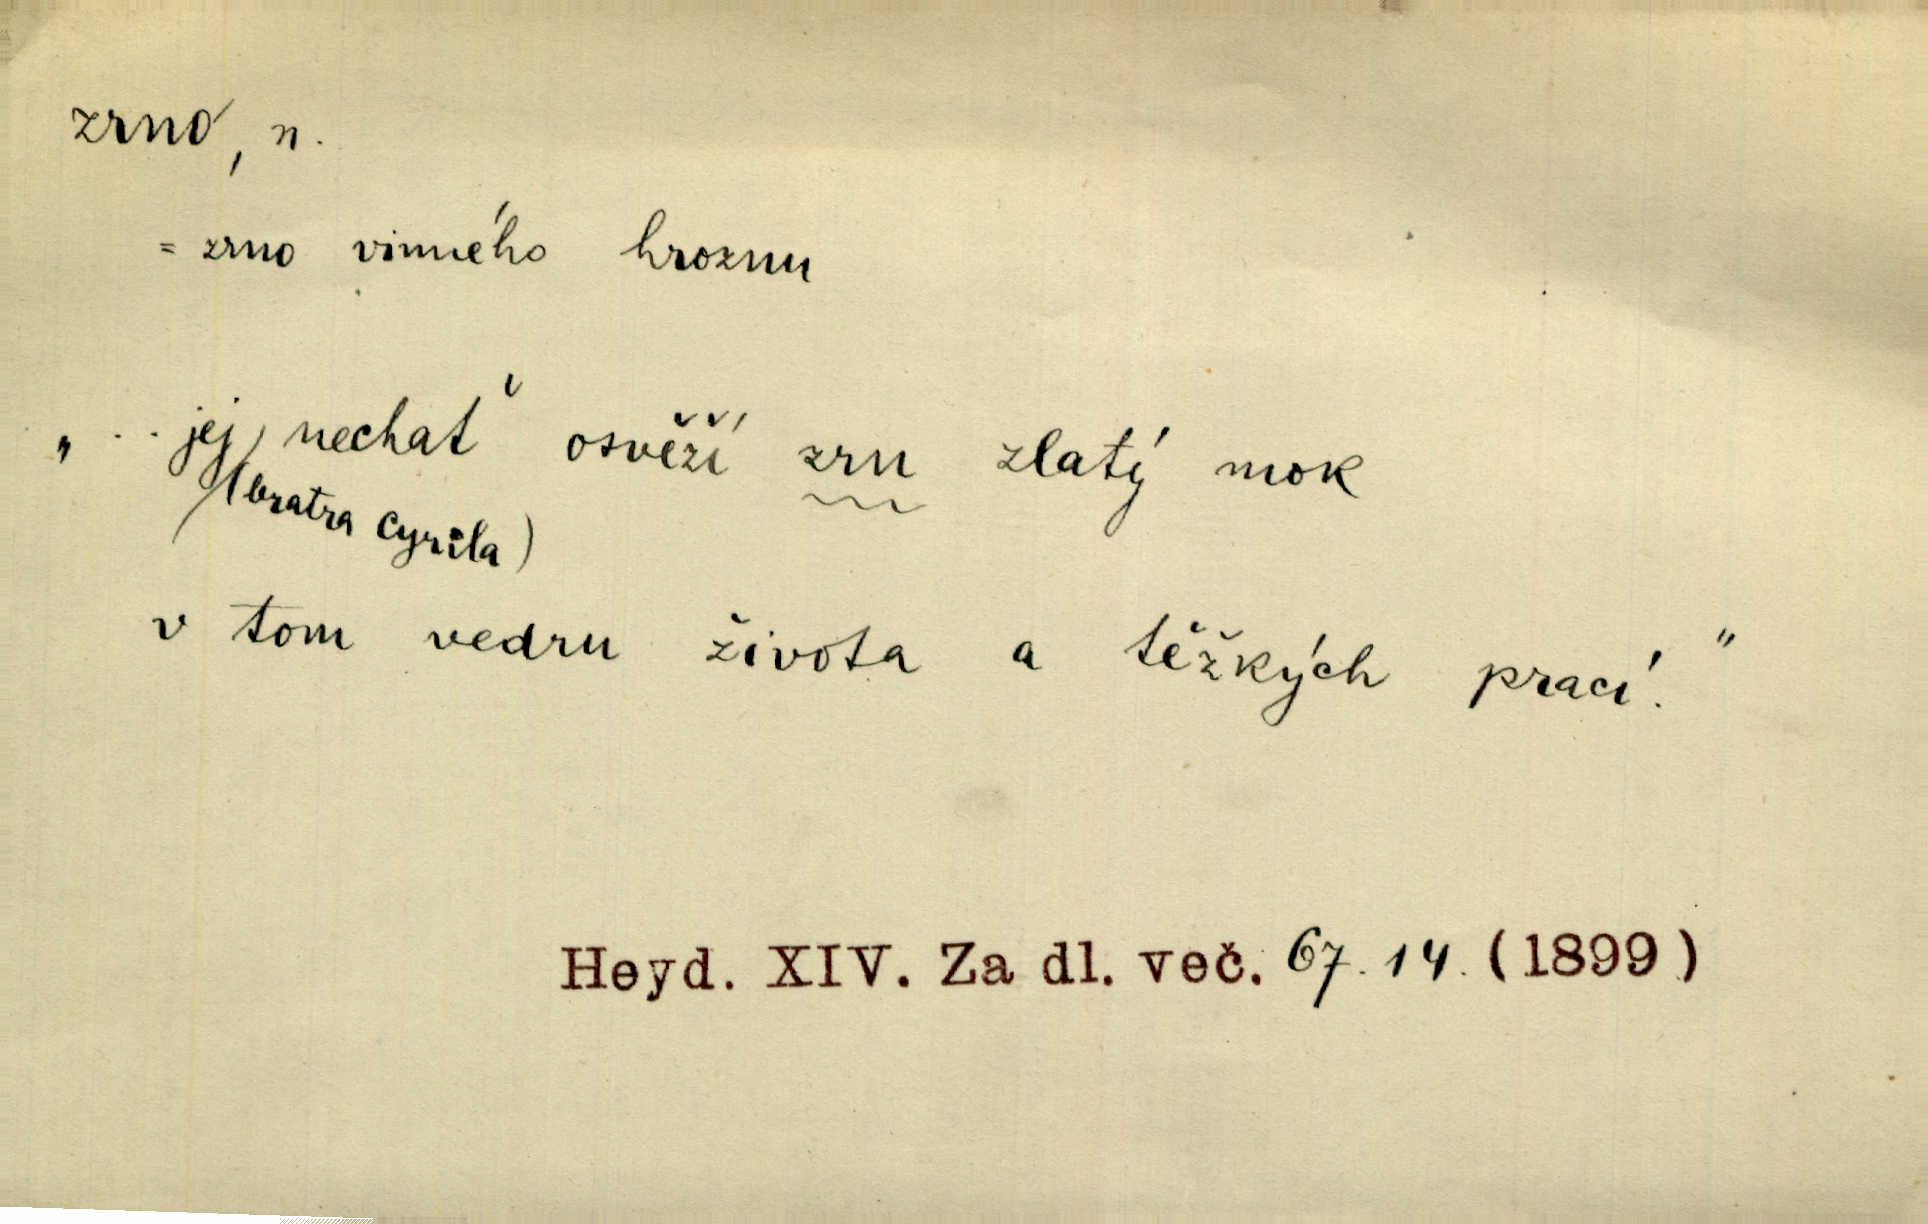 zrno, n.
= zrno vinného hroznu
„ .. jej, nechať osvěží zrn zlatý mok
(bratra Cyrila)
v tom vedru života a těžkých prací."
Heyd. XIV. Za dl. več. 67. 14. (1899)